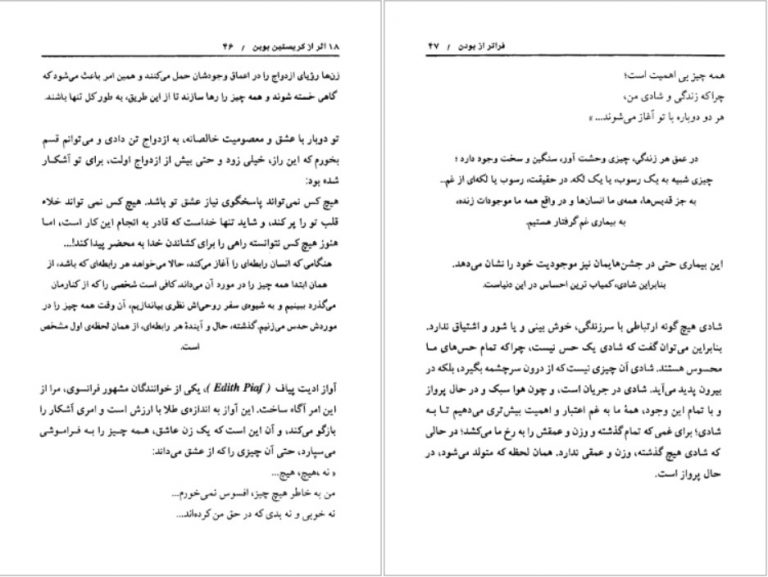 ۱۸ اثر از کریستین بوبن / ۴۶
زن‌ها رؤیای ازدواج را در اعماق وجودشان حمل می‌کنند و همین امر باعث می‌شود که
گاهی خسته شوند و همه چیز را رها سازند تا از این طریق، به طور کل تنها باشند.
تو دوبار با عشق و معصومیت خالصانه، به ازدواج تن دادی و می‌توانم قسم
بخورم که این راز، خیلی زود و حتی بیش از ازدواج اولت، برای تو آشکار
شده بود:
هیچ کس نمی‌تواند پاسخگوی نیاز عشق تو باشد. هیچ کس نمی تواند خلاء
قلب تو را پر کند، و شاید تنها خداست که قادر به انجام این کار است، اما
هنوز هیچ کس نتوانسته راهی را برای کشاندن خدا به محضر پیدا کند!...
هنگامی که انسان رابطه‌ای را آغاز می‌کند، حالا می‌خواهد هر رابطه‌ای که باشد، از
همان ابتدا همه چیز را در مورد آن می‌داند. کافی است شخصی را که از کنارمان
می‌گذرد ببینیم و به شیوه‌ی سفر روحی‌اش نظری بیاندازیم، آن وقت همه چیز را در
موردش حدس می‌زنیم. گذشته، حال و آیندهٔ هر رابطه‌ای، از همان لحظه‌ی اول مشخص
است.
آواز ادیت پیاف ( Edith Piaf )، یکی از خوانندگان مشهور فرانسوی، مرا از
این امر آگاه ساخت. این آواز به اندازه‌ی طلا با ارزش است و امری آشکار را
بازگو می‌کند، و آن این است که یک زن عاشق، همه چیز را به فراموشی
می‌سپارد، حتی آن چیزی را که از عشق می‌داند:
« نه ،هیچ، هیچ...
من به خاطر هیچ چیز، افسوس نمی‌خورم...
نه خوبی و نه بدی که در حق من کرده‌اند...
فراتر از بودن / ۴۷
همه چیز بی اهمیت است؛
چراکه زندگی و شادی من،
هر دو دوباره با تو آغاز می‌شوند... »
در عمق هر زندگی، چیزی وحشت آور، سنگین و سخت وجود دارد ؛
چیزی شبیه به یک رسوب، یا یک لکه. در حقیقت، رسوب یا لکه‌ای از غم..
به جز قدیس‌ها، همه‌ی ما انسان‌ها و در واقع همه ما موجودات زنده،
به بیماری غم گرفتار هستیم.
این بیماری حتی در جشن‌هایمان نیز موجودیت خود را نشان می‌دهد.
بنابراین شادی، کمیاب ترین احساس در این دنیاست.
شادی هیچ گونه ارتباطی با سرزندگی، خوش بینی و یا شور و اشتیاق ندارد.
بنابراین می‌توان گفت که شادی یک حس نیست، چراکه تمام حس‌های ما
محسوس هستند. شادی آن چیزی نیست که از درون سرچشمه بگیرد، بلکه در
بیرون پدید می‌آید. شادی در جریان است، و چون هوا سبک و در حال پرواز
و با تمام این وجود، همهٔ ما به غم اعتبار و اهمیت بیش‌تری می‌دهیم تا به
شادی؛ برای غمی که تمام گذشته و وزن و عمقش را به رخ ما می‌کشد؛ در حالی
که شادی هیچ گذشته، وزن و عمقی ندارد. همان لحظه که متولد می‌شود، در
حال پرواز است.